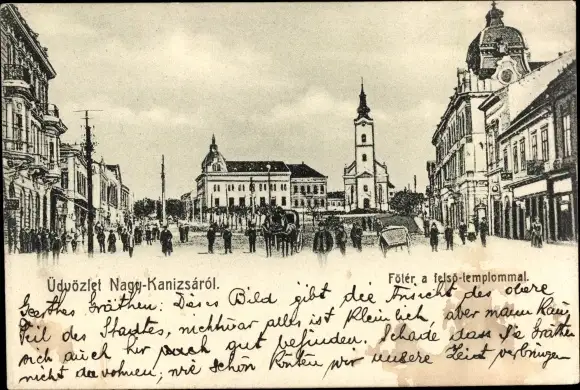 Üdvözlet Nagy-Kanizsáról.
Főtér a felső-templommal.
Geehrtes Gräthen: Dises Bild gibt die Ansicht des obere
Teil des Stadtes, nichtwar alles ist kleinlich aber mann kan,
sich auch hir noch gut befinden. Schade dass Sie Gräthen
nicht da wohnen; wie schön könten wir unsere Zeit verbringen